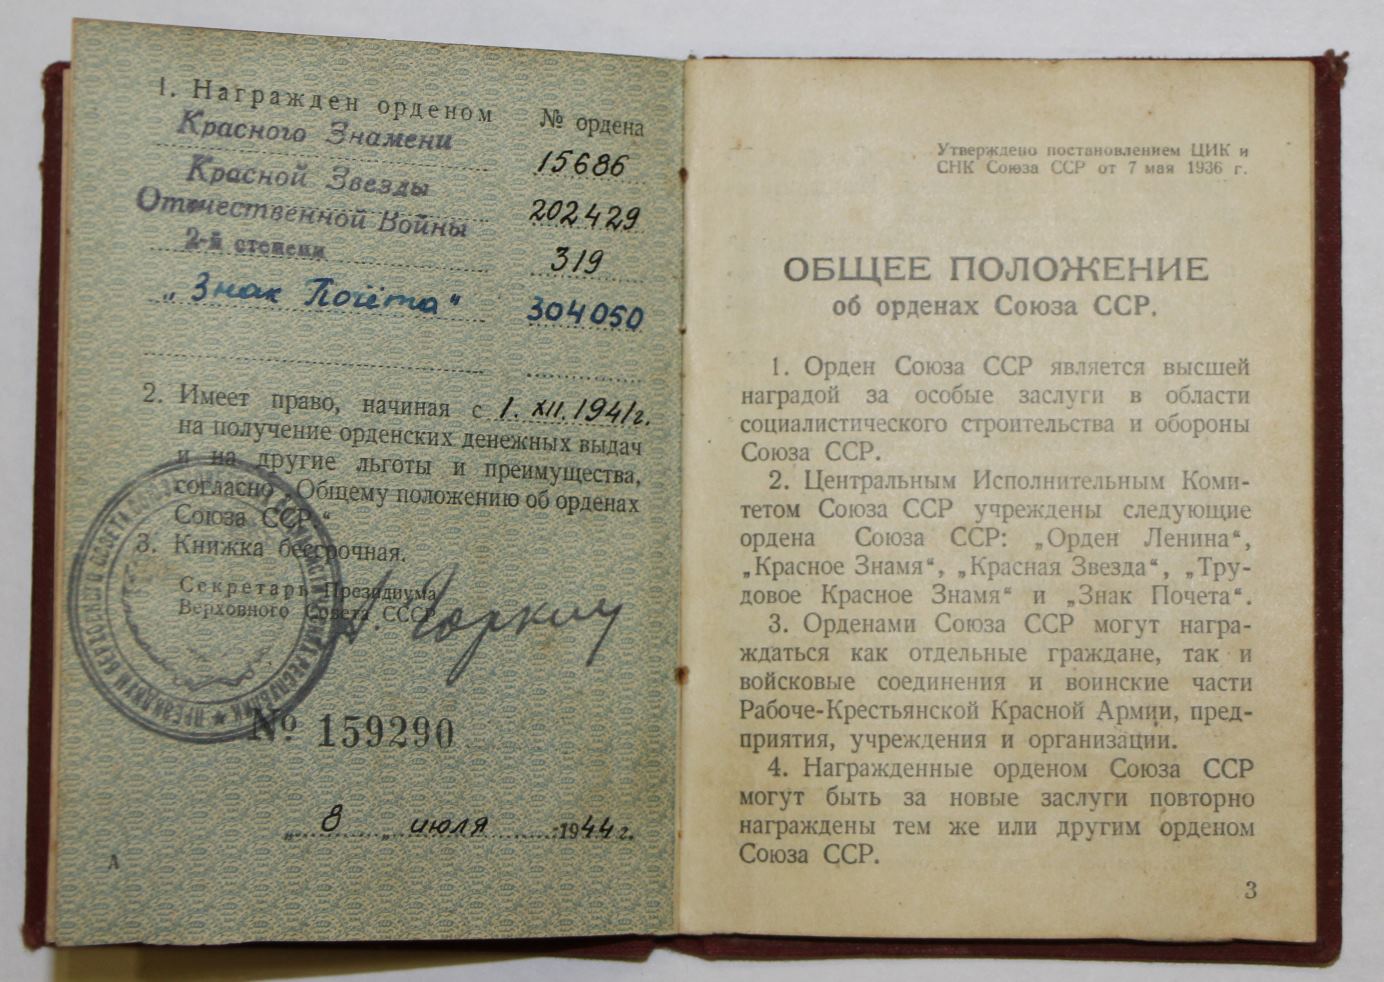 1. Награжден орденом № ордена
Красного Знамени 15686
Красной Звезды 202429
Отечественной Войны
2-й степени 319
„Знак Почёта“ 304050
2. Имеет право, начиная с 1.XII.1941г.
на получение орденских денежных выдач
и на другие льготы и преимущества,
согласно „Общему положению об орденах
Союза ССР“
3. Книжка бессрочная.
Секретарь Президиума
Верховного Совета СССР
А. Горкин
№ 159290
„ 8 „ июля 1944 г.
А
Утверждено постановлением ЦИК и
СНК Союза ССР от 7 мая 1936 г.
ОБЩЕЕ ПОЛОЖЕНИЕ
об орденах Союза ССР.
1. Орден Союза ССР является высшей
наградой за особые заслуги в области
социалистического строительства и обороны
Союза ССР.
2. Центральным Исполнительным Коми-
тетом Союза ССР учреждены следующие
ордена Союза ССР: „Орден Ленина“,
„Красное Знамя“, „Красная Звезда“, „Тру-
довое Красное Знамя“ и „Знак Почета“.
3. Орденами Союза ССР могут награ-
ждаться как отдельные граждане, так и
войсковые соединения и воинские части
Рабоче-Крестьянской Красной Армии, пред-
приятия, учреждения и организации.
4. Награжденные орденом Союза ССР
могут быть за новые заслуги повторно
награждены тем же или другим орденом
Союза ССР.
3